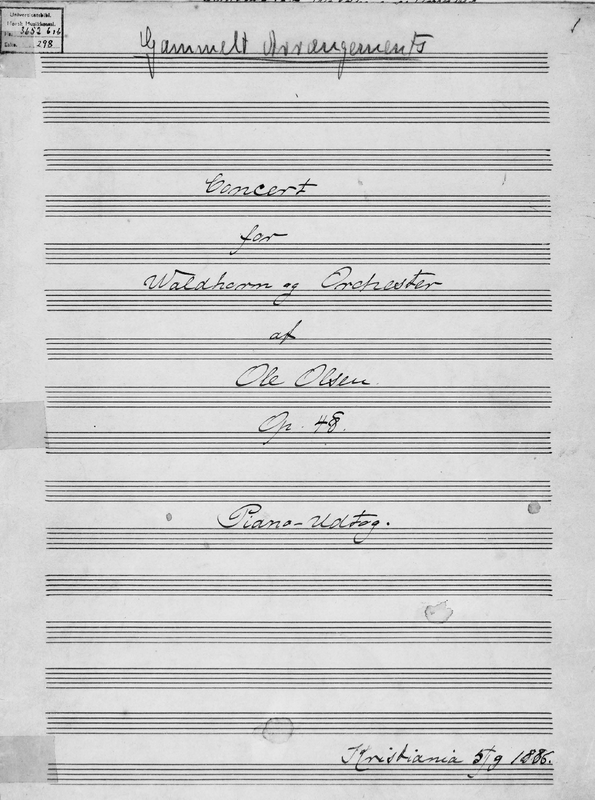 Universitetsbibl.
Norsk Musikksaml.
3652 b 16
298
1
Gammelt Arrangements
Concert
for
Waldhorn og Orchester
af
Ole Olsen.
Op. 48.
Piano-Udtog.
Kristiania 5/9 1886.